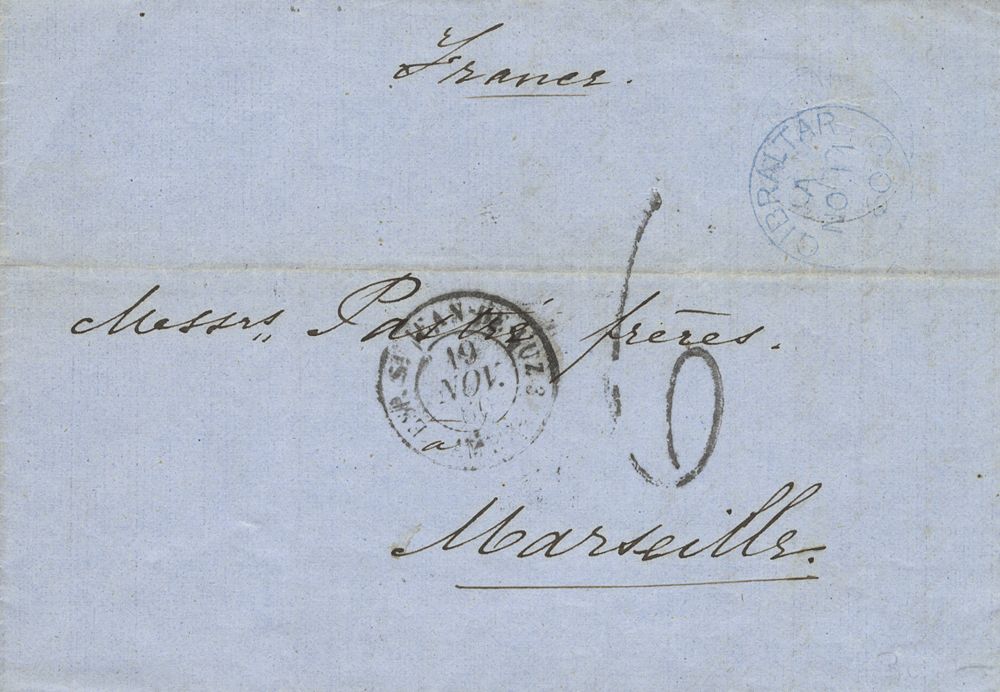 France.
GIBRALTAR
NOV
Messrs,, Pastré frères.
10
ST JEAN-DE-LUZ
19
NOV.
a
Marseille.